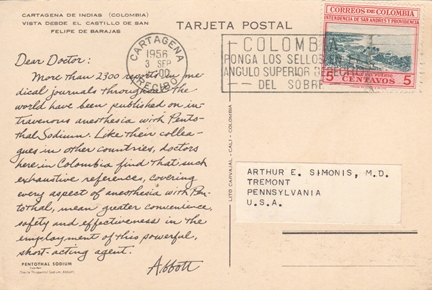 CARTAGENA DE INDIAS (COLOMBIA)
VISTA DESDE EL CASTILLO DE SAN
FELIPE DE BARAJAS
TARJETA POSTAL
Dear Doctor:
More than 2300 reports in me-
dical journals throughout the
world have been published on in-
travenous anesthesia with Pento-
thal Sodium. Like their collea-
gues in other countries, doctors
here in Colombia find that such
exhaustive reference, covering
every aspect of anesthesia with Pen-
tothal, mean greater convenience,
safety and effectiveness in the
employment of this powerful,
short-acting agent.
Abbott
PENTOTHAL SODIUM
CARTAGENA
1956
3 SEP
COLOMBIA
PONGA LOS SELLOS EN EL
ANGULO SUPERIOR
DEL SOBRE
CORREOS DE COLOMBIA
INTENDENCIA DE SAN ANDRES Y PROVIDENCIA
5 CENTAVOS 5
LITO CARVAJAL - CALI - COLOMBIA
ARTHUR E. SIMONIS, M.D.
TREMONT
PENNSYLVANIA
U.S.A.